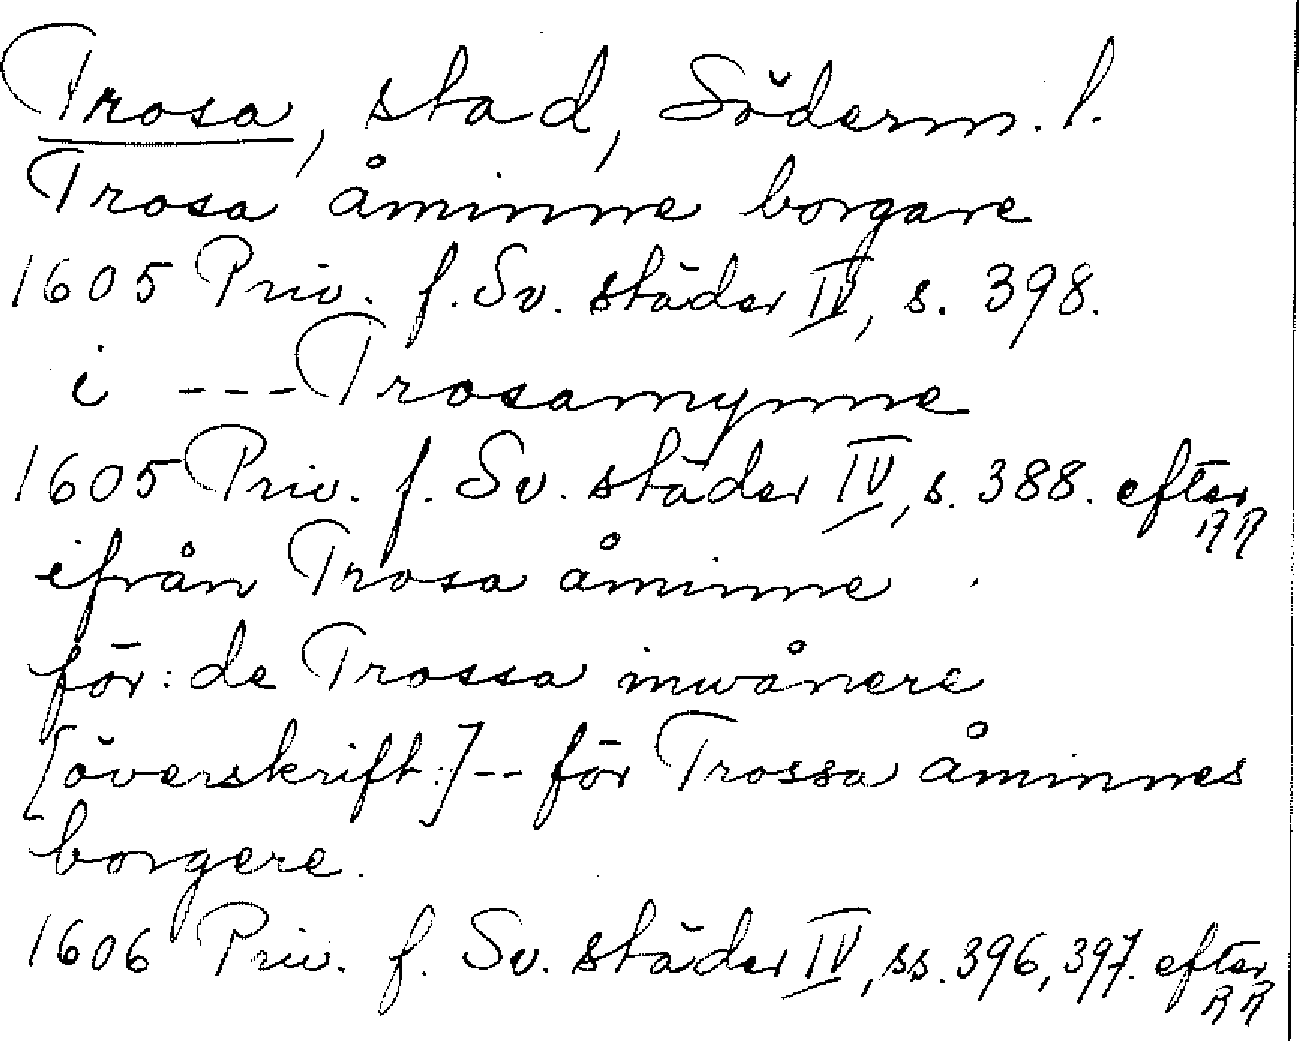 Trosa, stad, Söderm. l.
Trosa åminne borgare
1605 Priv. f. Sv. städer IV, s. 398.
i --- Trosamynne
1605 Priv. f. Sv. städer IV, s. 388. efter RR
ifrån Trosa åminne
för: de Trossa inwånere
[överskift:] -- för Trossa åminnes
borgere.
1606 Priv. f. Sv. städer IV, ss. 396, 397. efter RR